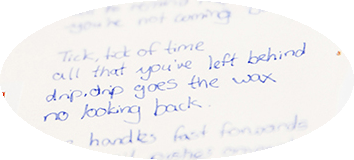 you're not coming
Tick, tick of time
all that you've left behind
drip, drip goes the wax
no looking back.
handles fast forwards